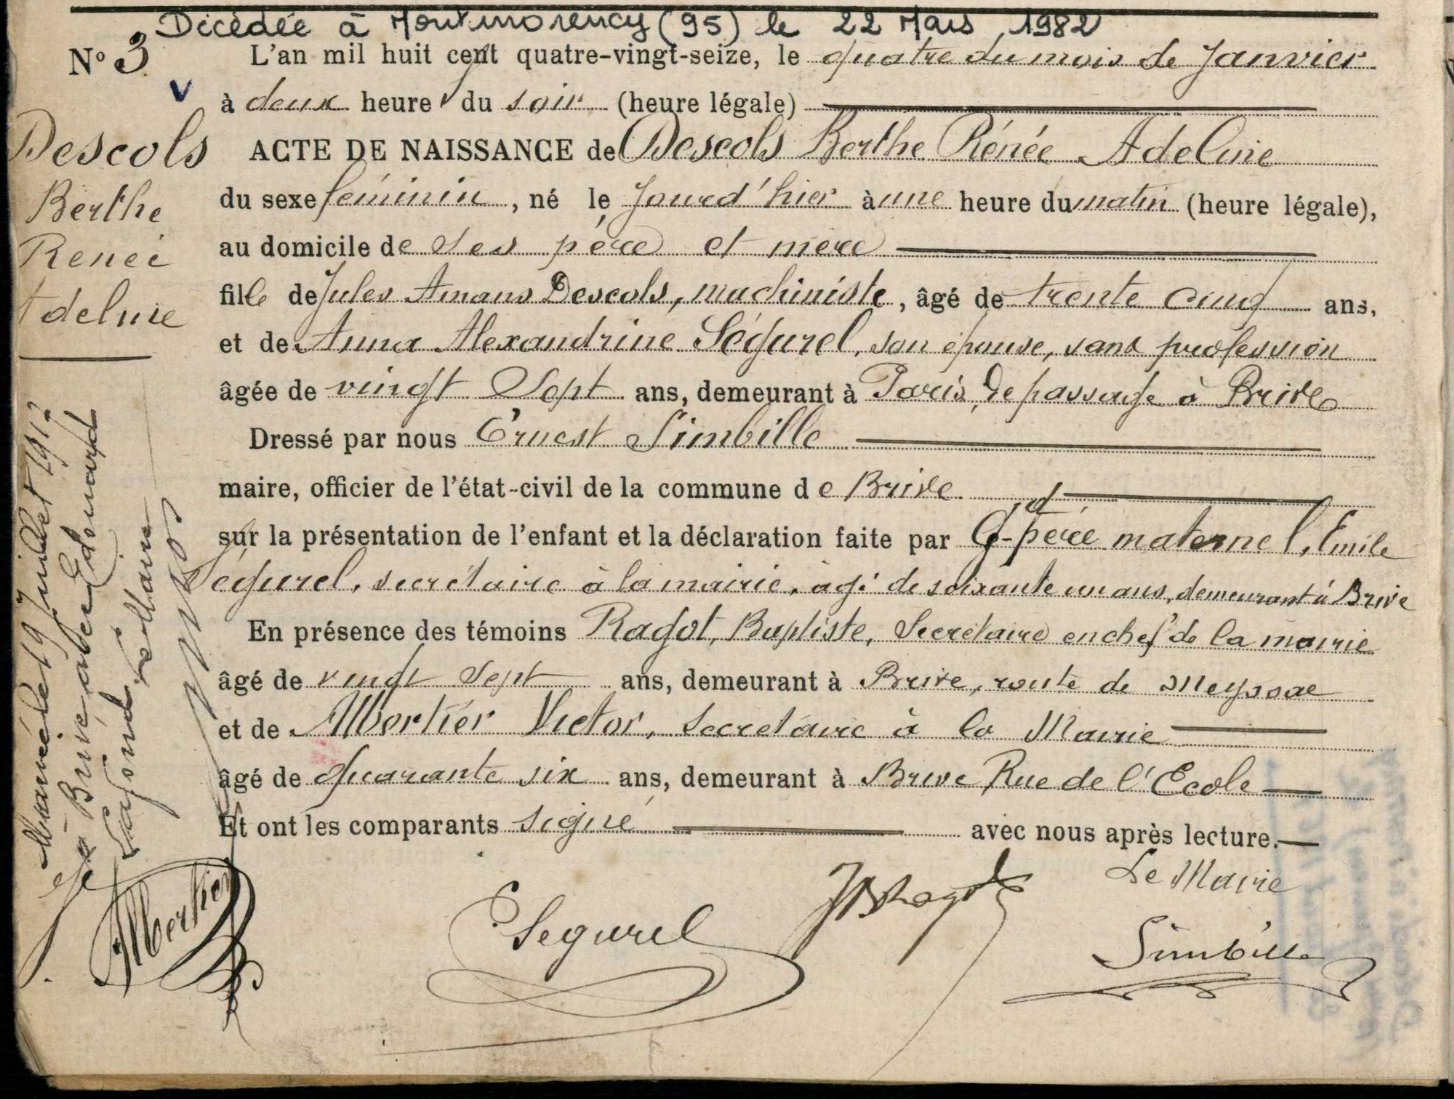 Décédée à Montmorency (95) le 22 Mars 1982
N° 3
L'an mil huit cent quatre-vingt-seize, le quatre du mois de Janvier
à deux heures du soir (heure légale)
Descols
Berthe
Renée
Adeline
ACTE DE NAISSANCE de Descols Berthe Rénée Adeline
du sexe féminin, né le jourd'hier à une heure du matin (heure légale),
au domicile de ses père et mère
fille de Jules Amans Descols, machiniste, âgé de trente cinq ans,
et de Anna Alexandrine Ségurel, son épouse, sans profession
âgée de vingt sept ans, demeurant à Paris, de passage à Brive
Dressé par nous Ernest Simbille
maire, officier de l'état-civil de la commune de Brive
sur la présentation de l'enfant et la déclaration faite par Gd-père maternel, Emile
Ségurel, secrétaire à la mairie, âgé de soixante un ans, demeurant à Brive
En présence des témoins Ragot, Baptiste, Secrétaire en chef de la mairie
âgé de vingt sept ans, demeurant à Brive, route de Meyssac
et de Albertier Victor, Secrétaire à la Mairie
âgé de quarante six ans, demeurant à Brive Rue de l'Ecole
Et ont les comparants signé avec nous après lecture.
Mariée le 19 Juillet 191
à Brive avec Edouard
Lafond
Le Maire
Le Maire
Albertier
E Segurel
JB Ragot
Simbille